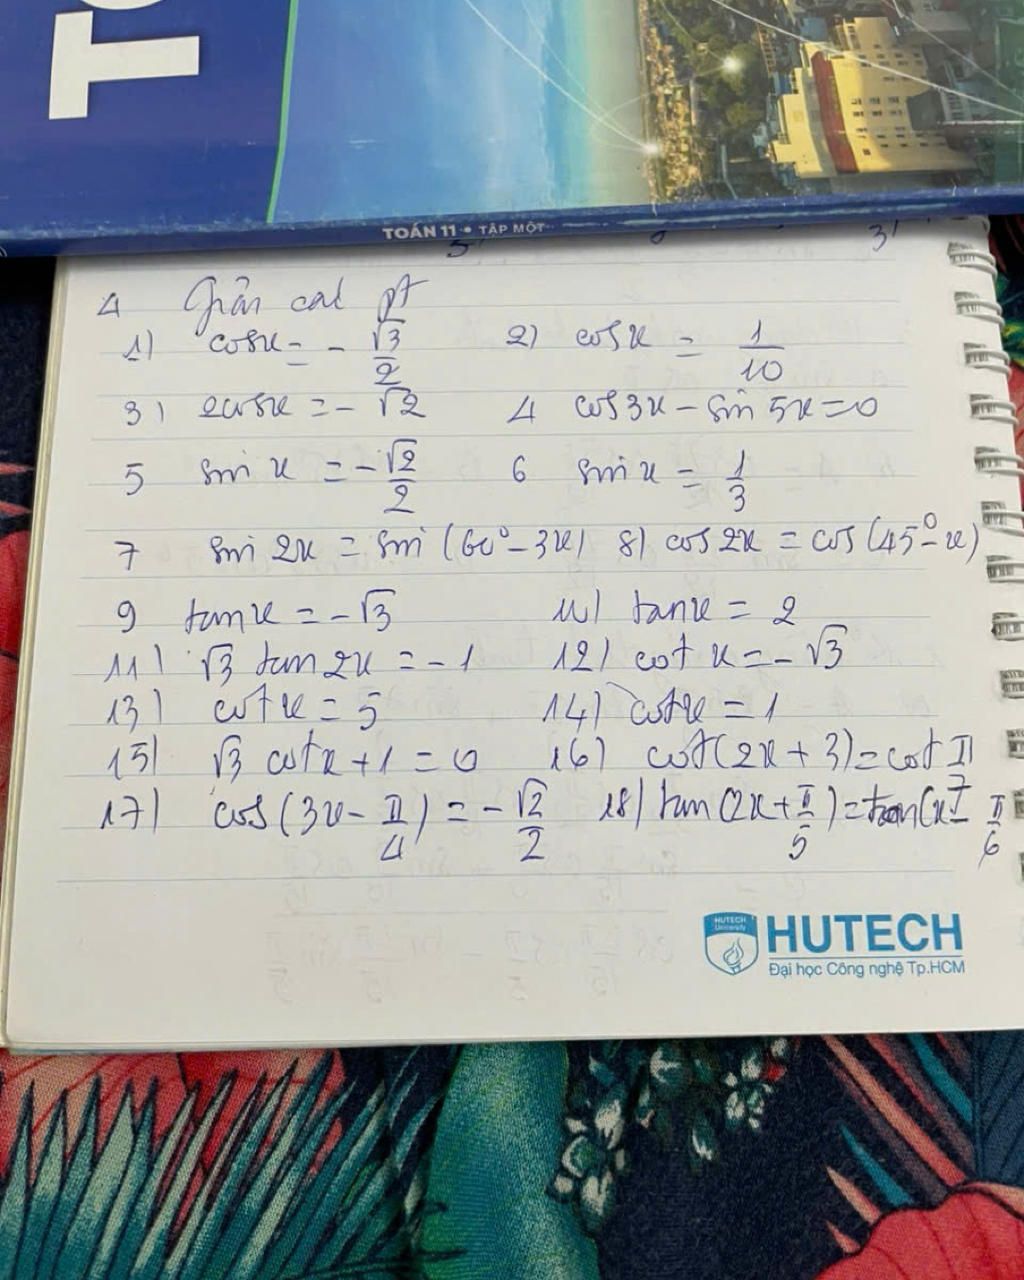 TO
TOÁN 11 • TẬP MỘT
3'
4 Giải các pt
1) cosx = - √3/2 2) cosx = 1/10
3) 2cosx = - √2 4 cos3x - sin 5x = 0
5 sin x = - √2/2 6 sin x = 1/3
7 sin 2x = sin (60° - 3x) 8) cos 2x = cos (45° - x)
9 tan x = - √3 10) tanx = 2
11) √3 tan 2x = - 1 12) cot x = - √3
13) cotx = 5 14) cotx = 1
15) √3 cotx + 1 = 0 16) cot(2x + 3) = cot π/7
17) cos (3x - π/4) = - √2/2 18) tan (2x + π/5) = tan(x - π/6
HUTECH
University
HUTECH
Đại học Công nghệ Tp.HCM